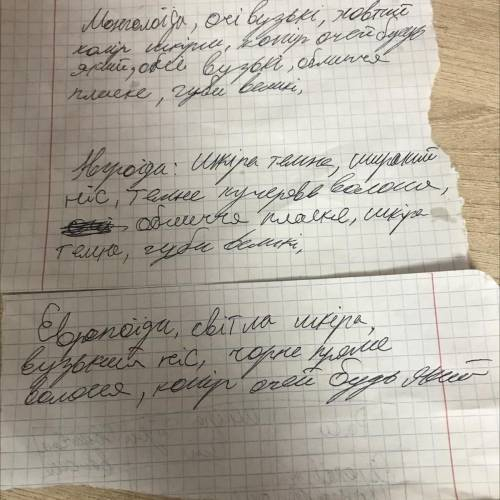 Монголоїда, очі вузькі, жовтий
колір шкіри, колір очей будь
який, очі вузькі, обличчя
пласке, губи великі,
Нгроїда: шкіра темна, широкий
ніс, темне кучеряве волосся,
обличчя пласке, шкіра
темна, губи великі,
Європоїди, світла шкіра,
вузький ніс, чорне пряме
волосся, колір очей будь який